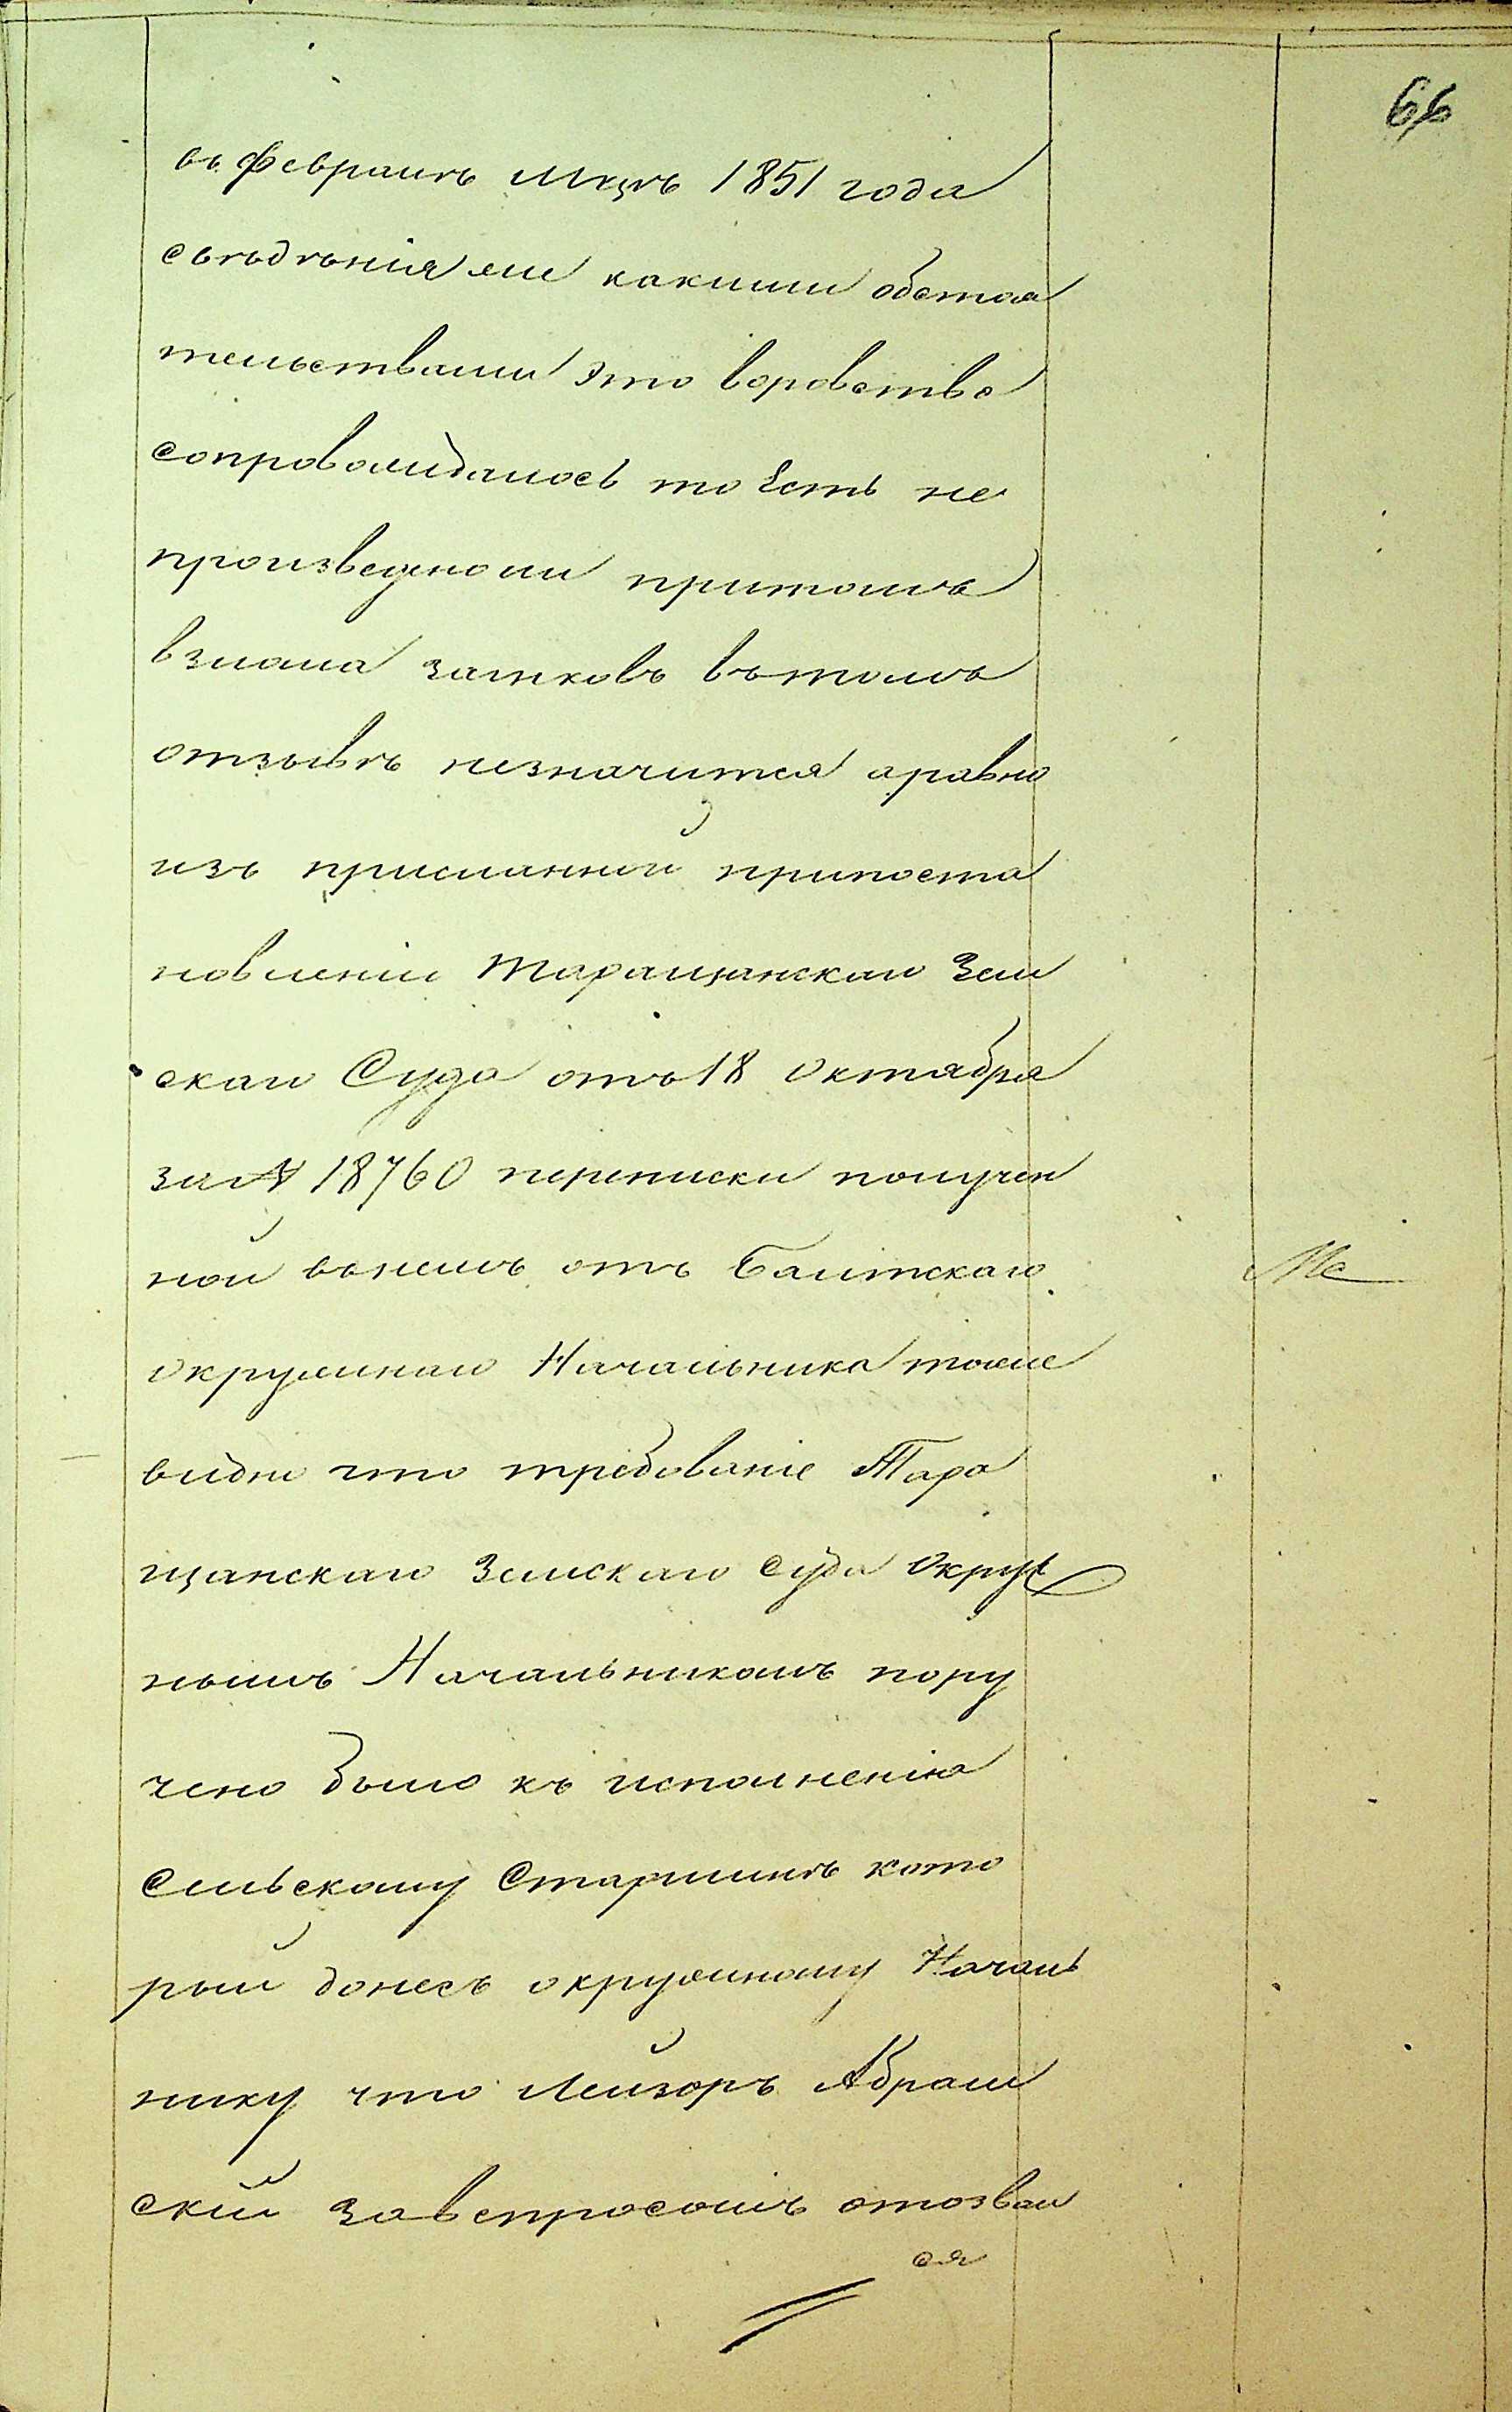 66
въ Февралѣ Мцѣ 1851 года
свѣдѣнія же какими обстоя
тельствами это воровство
сопровождалось то Есть не
произведено ли притомъ
взлома замковъ въ томъ
отзывѣ незначится аравно
изъ присланной припоста
новленіи Таращанскаго Зем
скаго Суда отъ 18 Октября
за № 18760 переписки получен
ной въ немъ отъ Балтскаго
окружнаго Начальника тоже
видно что требованіе Тара
щанскаго Земскаго Суда Окруж
нымъ Начальникомъ пору
чено было къ исполненію
Сельскому Старшинѣ кото
рый донесъ окружному Началь
нику что Лейзоръ Абрам
скій завспросомъ отозвал
ся